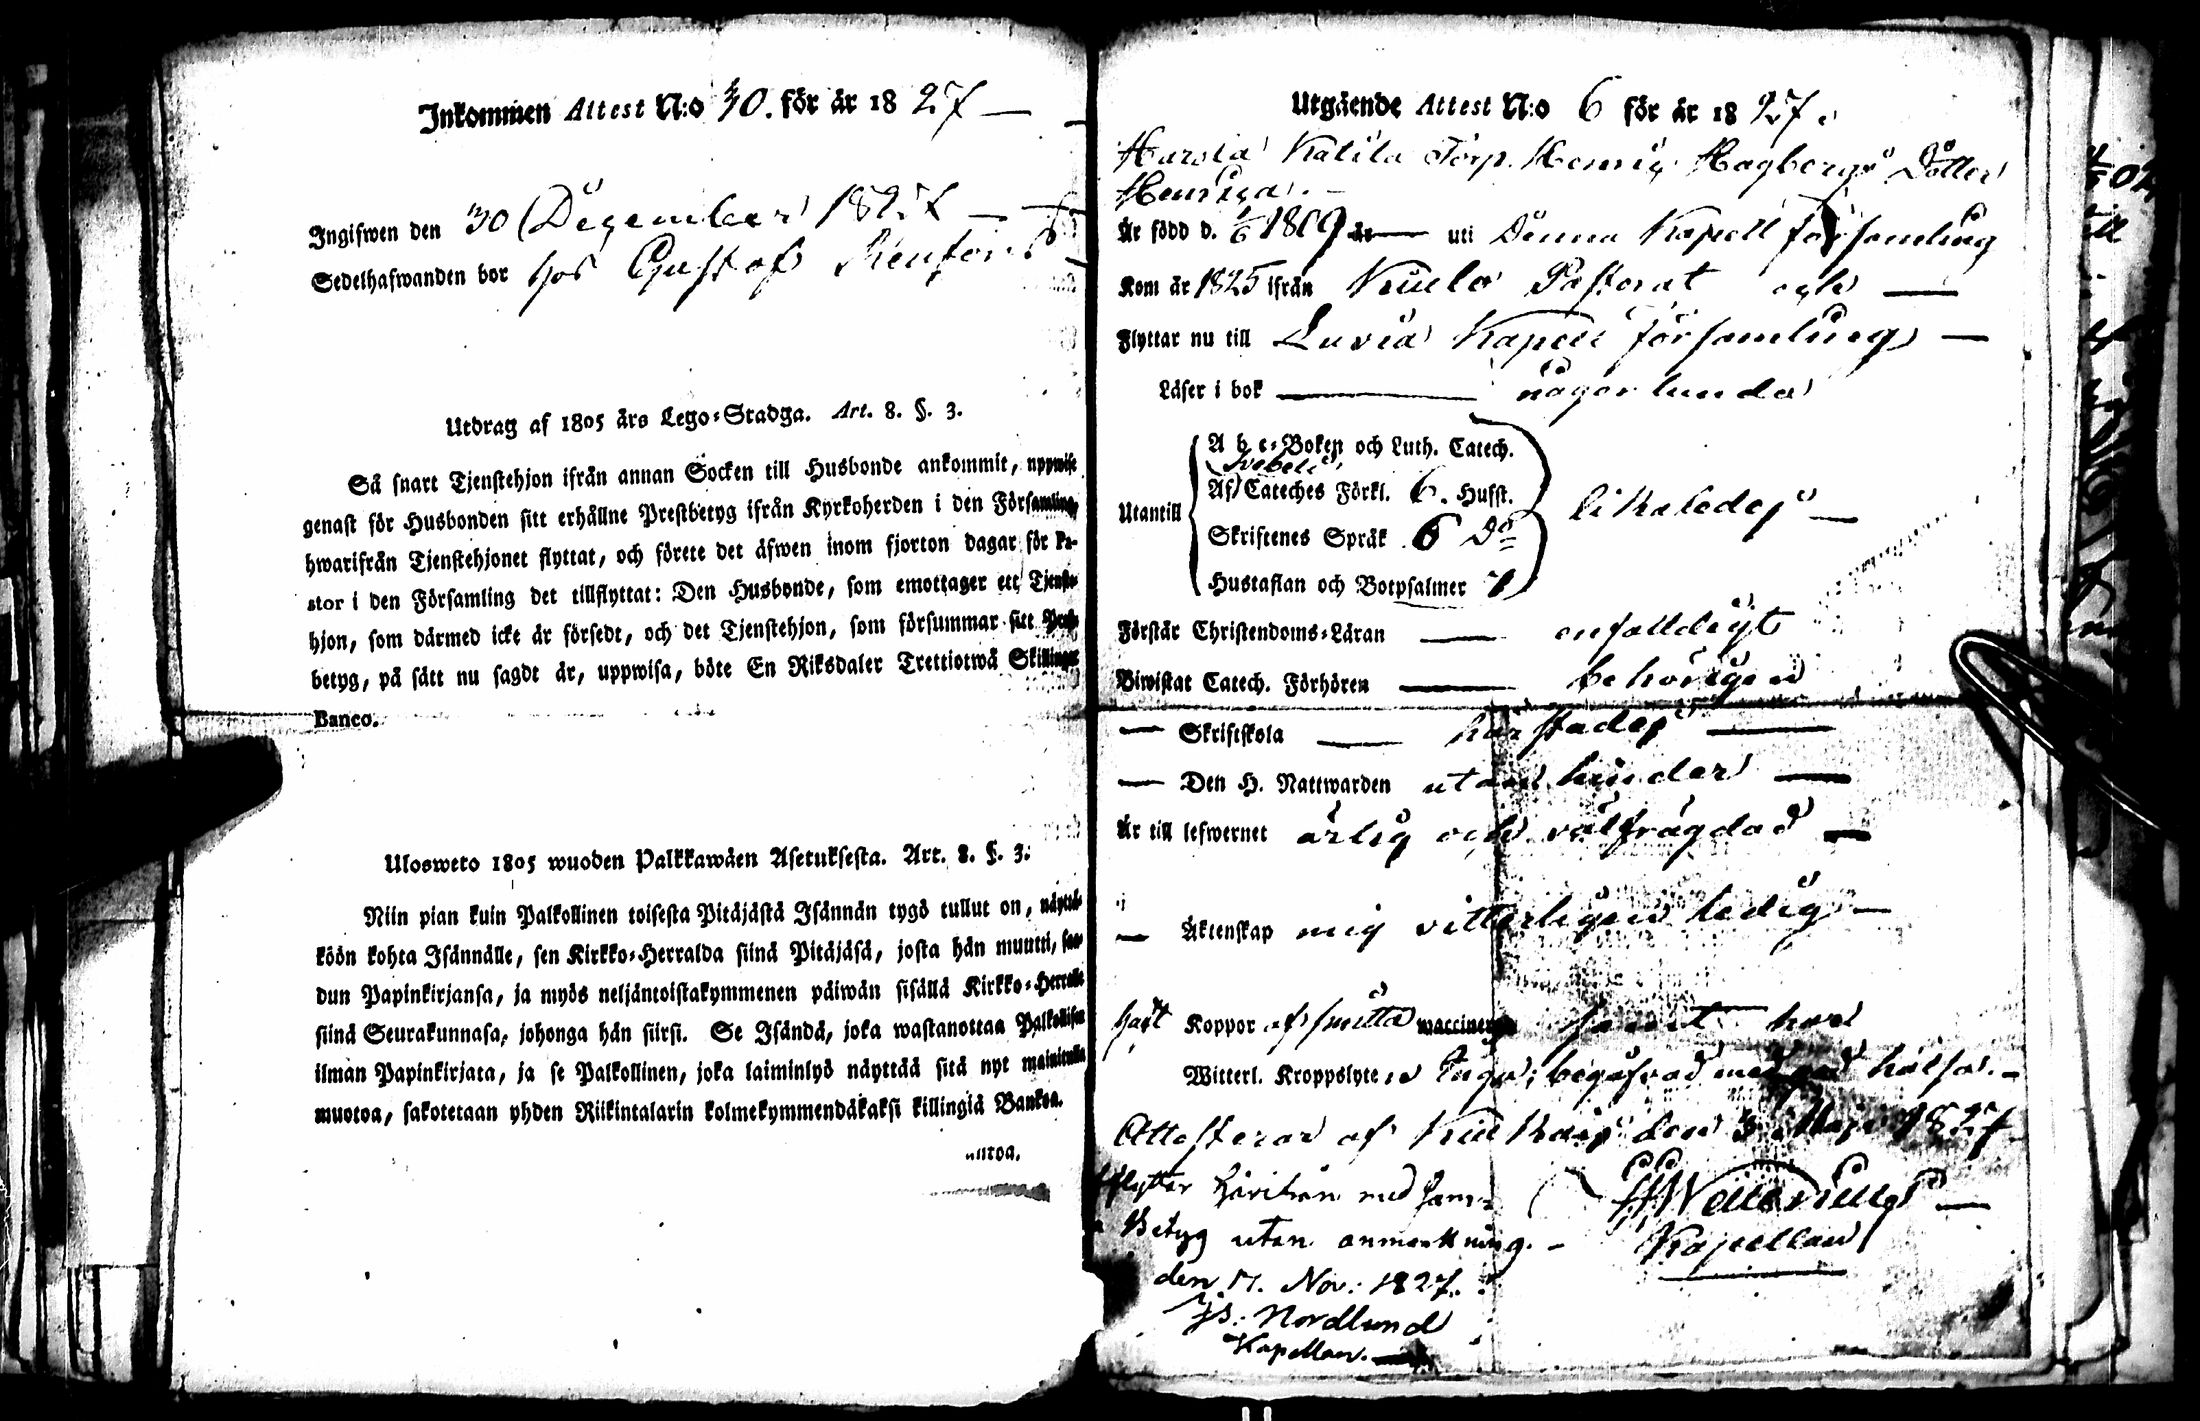 Inkommen Attest N:o 30. för år 1827 —
Ingifwen den 30 December 1827 —
Sedelhafwanden bor hos Gustaf
Utdrag af 1805 års Lego-Stadga. Art. 8. §. 3.
Så snart Tjenstehjon ifrån annan Socken till Husbonde ankommit, uppwise
genast för Husbonden sitt erhållne Prestbetyg ifrån Kyrkoherden i den Församling,
hwarifrån Tjenstehjonet flyttat, och förete det äfwen inom fjorton dagar för Pa-
stor i den Församling det tillflyttat: Den Husbonde, som emottager ett Tjenste-
hjon, som därmed icke är försedt, och det Tjenstehjon, som försummar sitt Prest-
betyg, på sätt nu sagdt är, uppwisa, böte En Riksdaler Trettiotwå Skillingar
Banco.
Ulosweto 1805 wuoden Palkkawäen Asetuksesta. Art. 8. §. 3.
Niin pian kuin Palkollinen toisesta Pitäjästä Isännän tygö tullut on, näyttä-
köön kohta Isännälle, sen Kirkko-Herralda siinä Pitäjäsä, josta hän muutti, saa-
dun Papinkirjansa, ja myös neljäntoistakymmenen päiwän sisällä Kirkko-Herralle
siinä Seurakunnasa, johonga hän siirsi. Se Isändä, joka wastanottaa Palkollisen
ilman Papinkirjata, ja se Palkollinen, joka laiminlyö näyttää sitä nyt mainitulla
muotoa, sakotetaan yhden Riikintalarin kolmekymmendäkaksi killingiä Bankoa.
Utgående Attest N:o 6 för år 1827.
Katila Torp. Henric Hagbergs Dotter
Henrica. —
Är född d. 1/6 1809 år — uti Denna Kapell församling
Kom år 1825 ifrån Pastorat och —
Flyttar nu till Luvia Kapell församling —
Läser i bok — någorlunda
A b c-Boken och Luth. Catech.
Svebelii
Af Cateches Förkl. 6. Hufst.
Utantill likaledes —
Skriftenes Språk 6 Do
Hustaflan och Botpsalmer 7
Förstår Christendoms-Läran — enfalldigt
Biwistat Catech. Förhören — behörigen
— Skriftskola — härstädes —
— Den H. Nattwarden utan hinder —
Är till lefwernet ärlig och välfrägdad —
— Äktenskap mig vitterligen ledig —
haft Koppor af smitta waccinerad samt har
Witterl. Kroppslyten inga; begåfvad med god hälsa. —
Attesteras af den 3 Maji 1827
Kapellan
flyttar härifrån med sam-
ma Betyg utan anmärkning. —
den 17. Nov: 1827.
Js: Nordlund
Kapellan. —